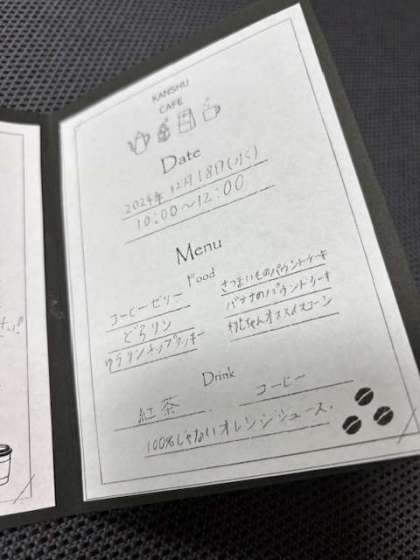 KANSHU
CAFE
Date
2024年 12月18日(水)
10:00〜12:00
Menu
Food
コーヒーゼリー
どらリン
さつまいものパウンドケーキ
バナナのパウンドケーキ
オススメスコーン
Drink
紅茶
コーヒー
100%じゃないオレンジジュース.